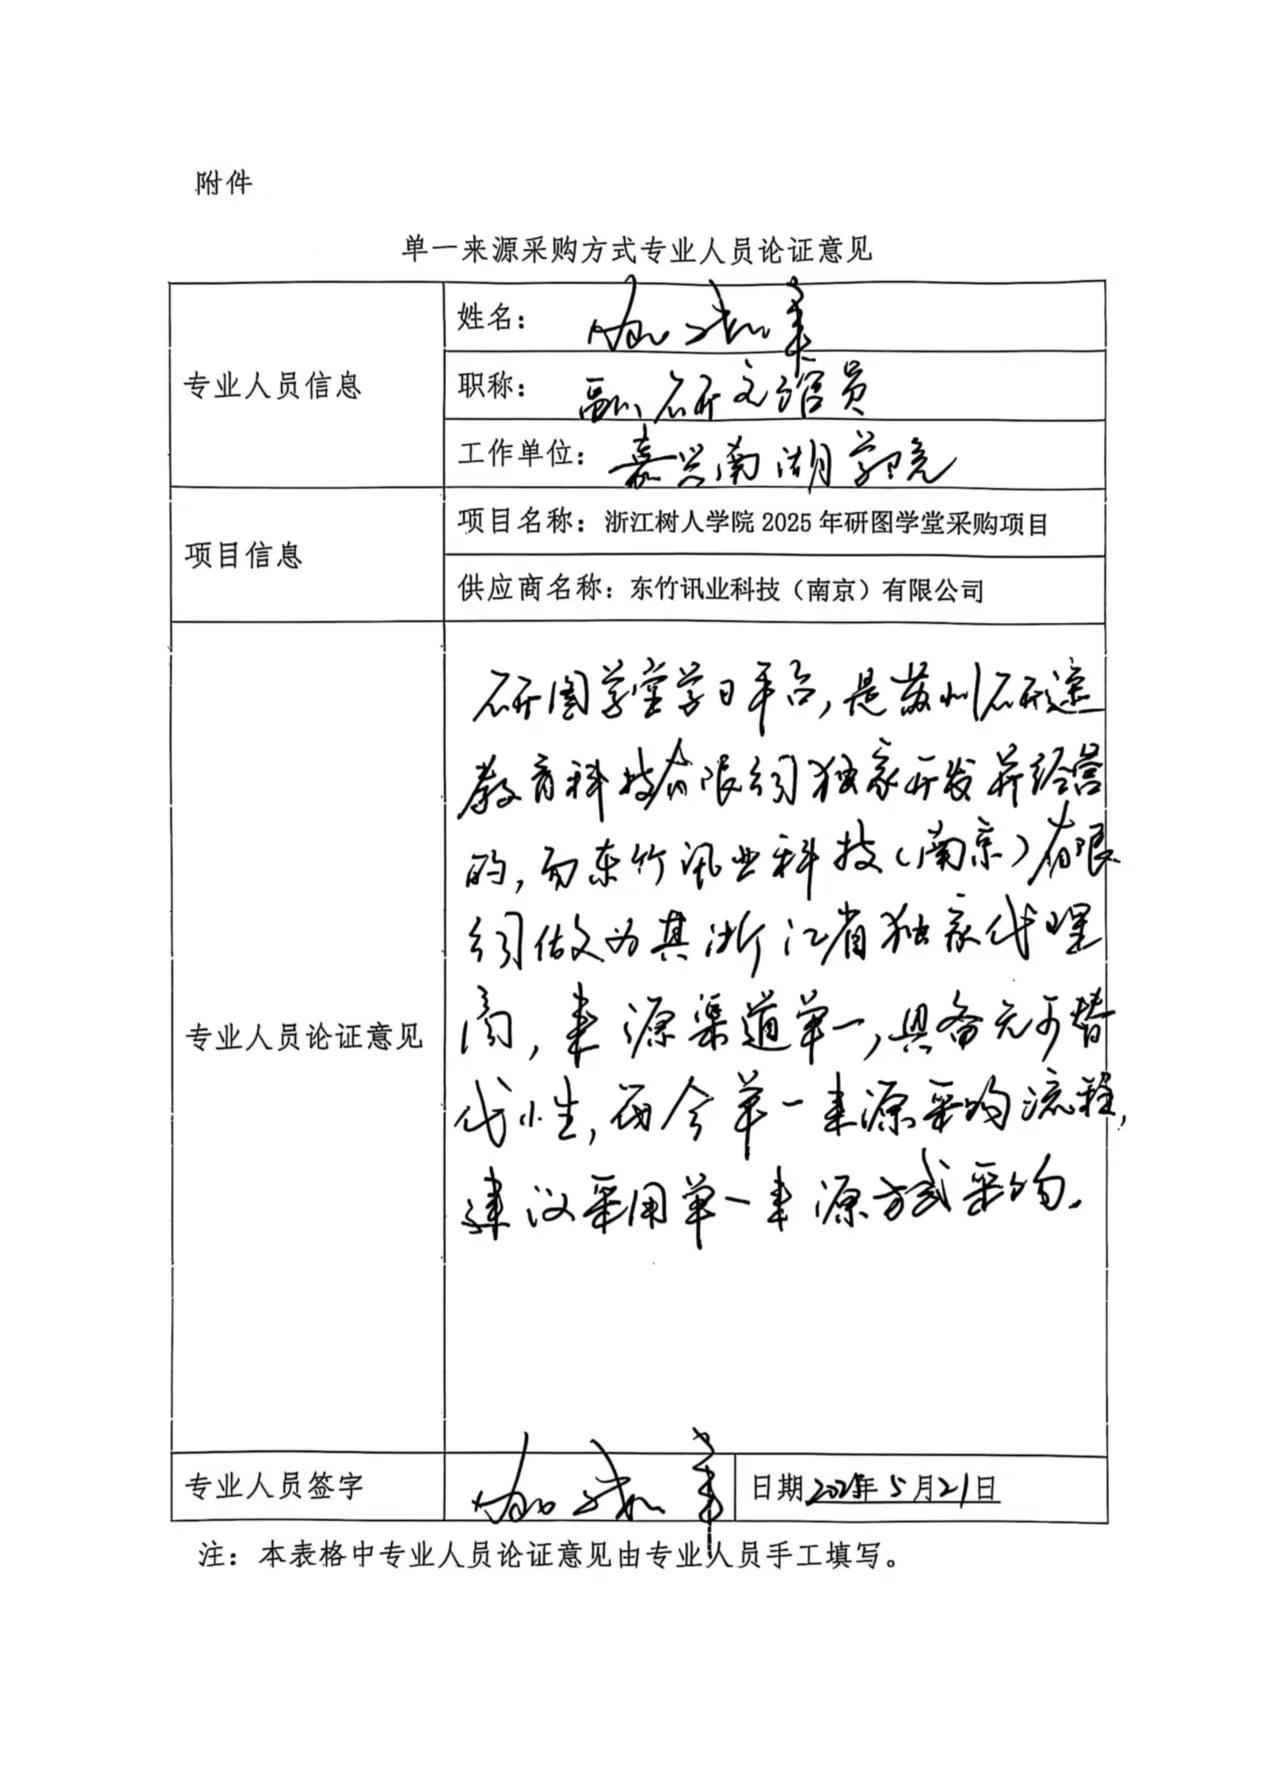 附件
单一来源采购方式专业人员论证意见
专业人员信息
姓名：
职称：副研究馆员
工作单位：嘉兴南湖学院
项目信息
项目名称：浙江树人学院2025年研图学堂采购项目
供应商名称：东竹讯业科技（南京）有限公司
专业人员论证意见
研图学堂学习平台，是苏州研途
教育科技有限公司独家开发并经营
的，而东竹讯业科技（南京）有限
公司做为其浙江省独家代理
商，来源渠道单一，具备无可替
代性，符合单一来源采购流程，
建议采用单一来源方式采购。
专业人员签字
日期2025年5月21日
注：本表格中专业人员论证意见由专业人员手工填写。